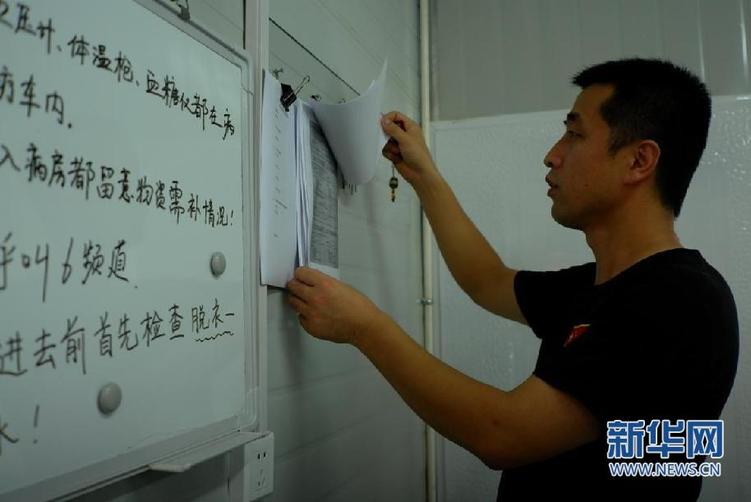 压计、体温枪、血糖仪都在病
防车内.
入病房都留意物资需补情况!
呼叫6频道.
进去前首先检查脱衣一
水!
新华网
WWW.NEWS.CN